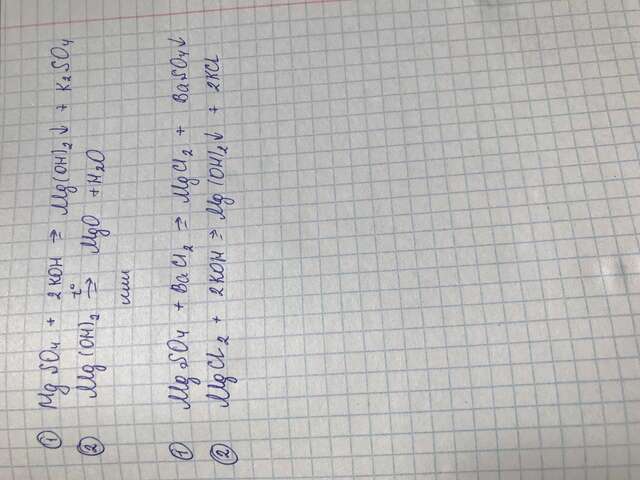 ① MgSO4 + 2KOH ⇒ Mg(OH)2↓ + K2SO4
② Mg(OH)2 t°⇒ MgO + H2O
или
① MgSO4 + BaCl2 ⇒ MgCl2 + BaSO4↓
② MgCl2 + 2KOH ⇒ Mg(OH)2↓ + 2KCl